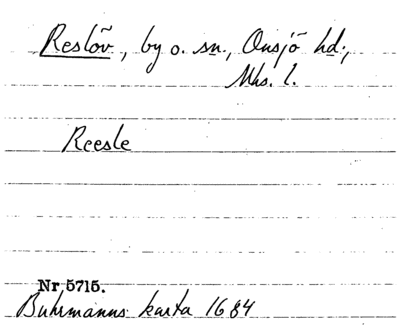 Reslöv, by o. sn., Onsjö hd.,
Mhs. l.
Reesle
Nr 5715.
Buhrmanns karta 1684